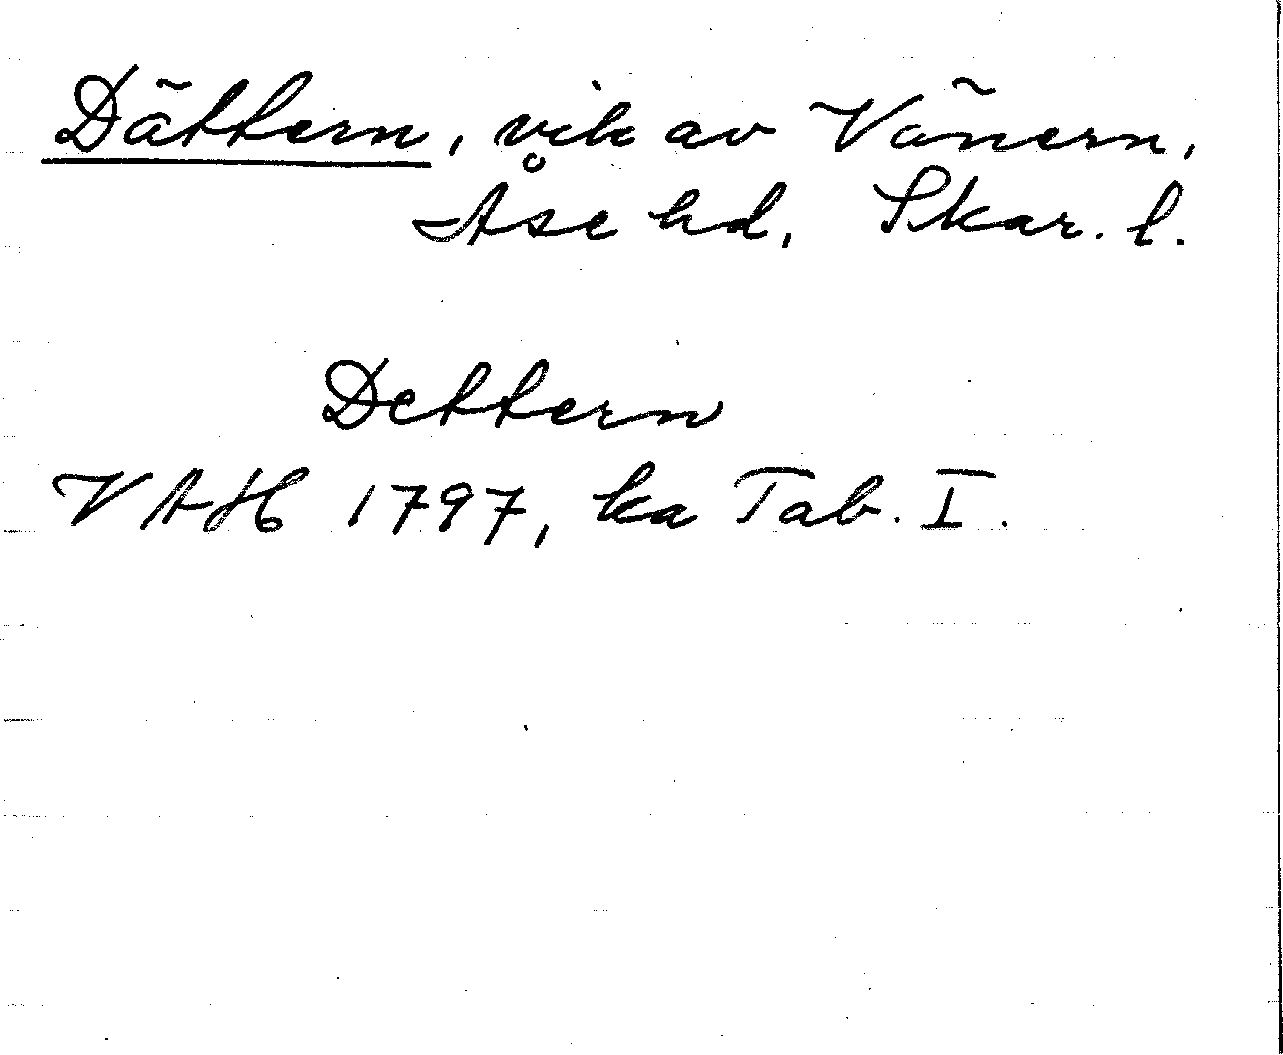 Dättern, vik av Vänern,
Åse hd, Skar. l.
Dettern
VAH 1797, ka Tab. I.